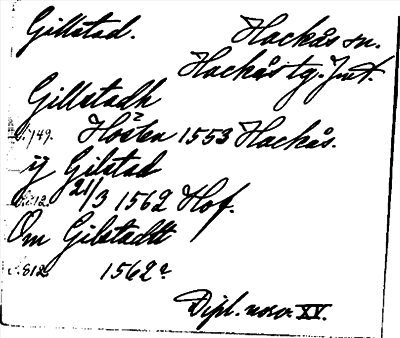 Gillstad. Hackås sn.
Hackås tg. Jmt.
Gillstadh
s. 749. Hösten 1553 Hackås.
ij Gilstad
s. 812 21/3 1562 Hof.
Om Gilstadh
s. 812 1562
Dipl. norv. XV.